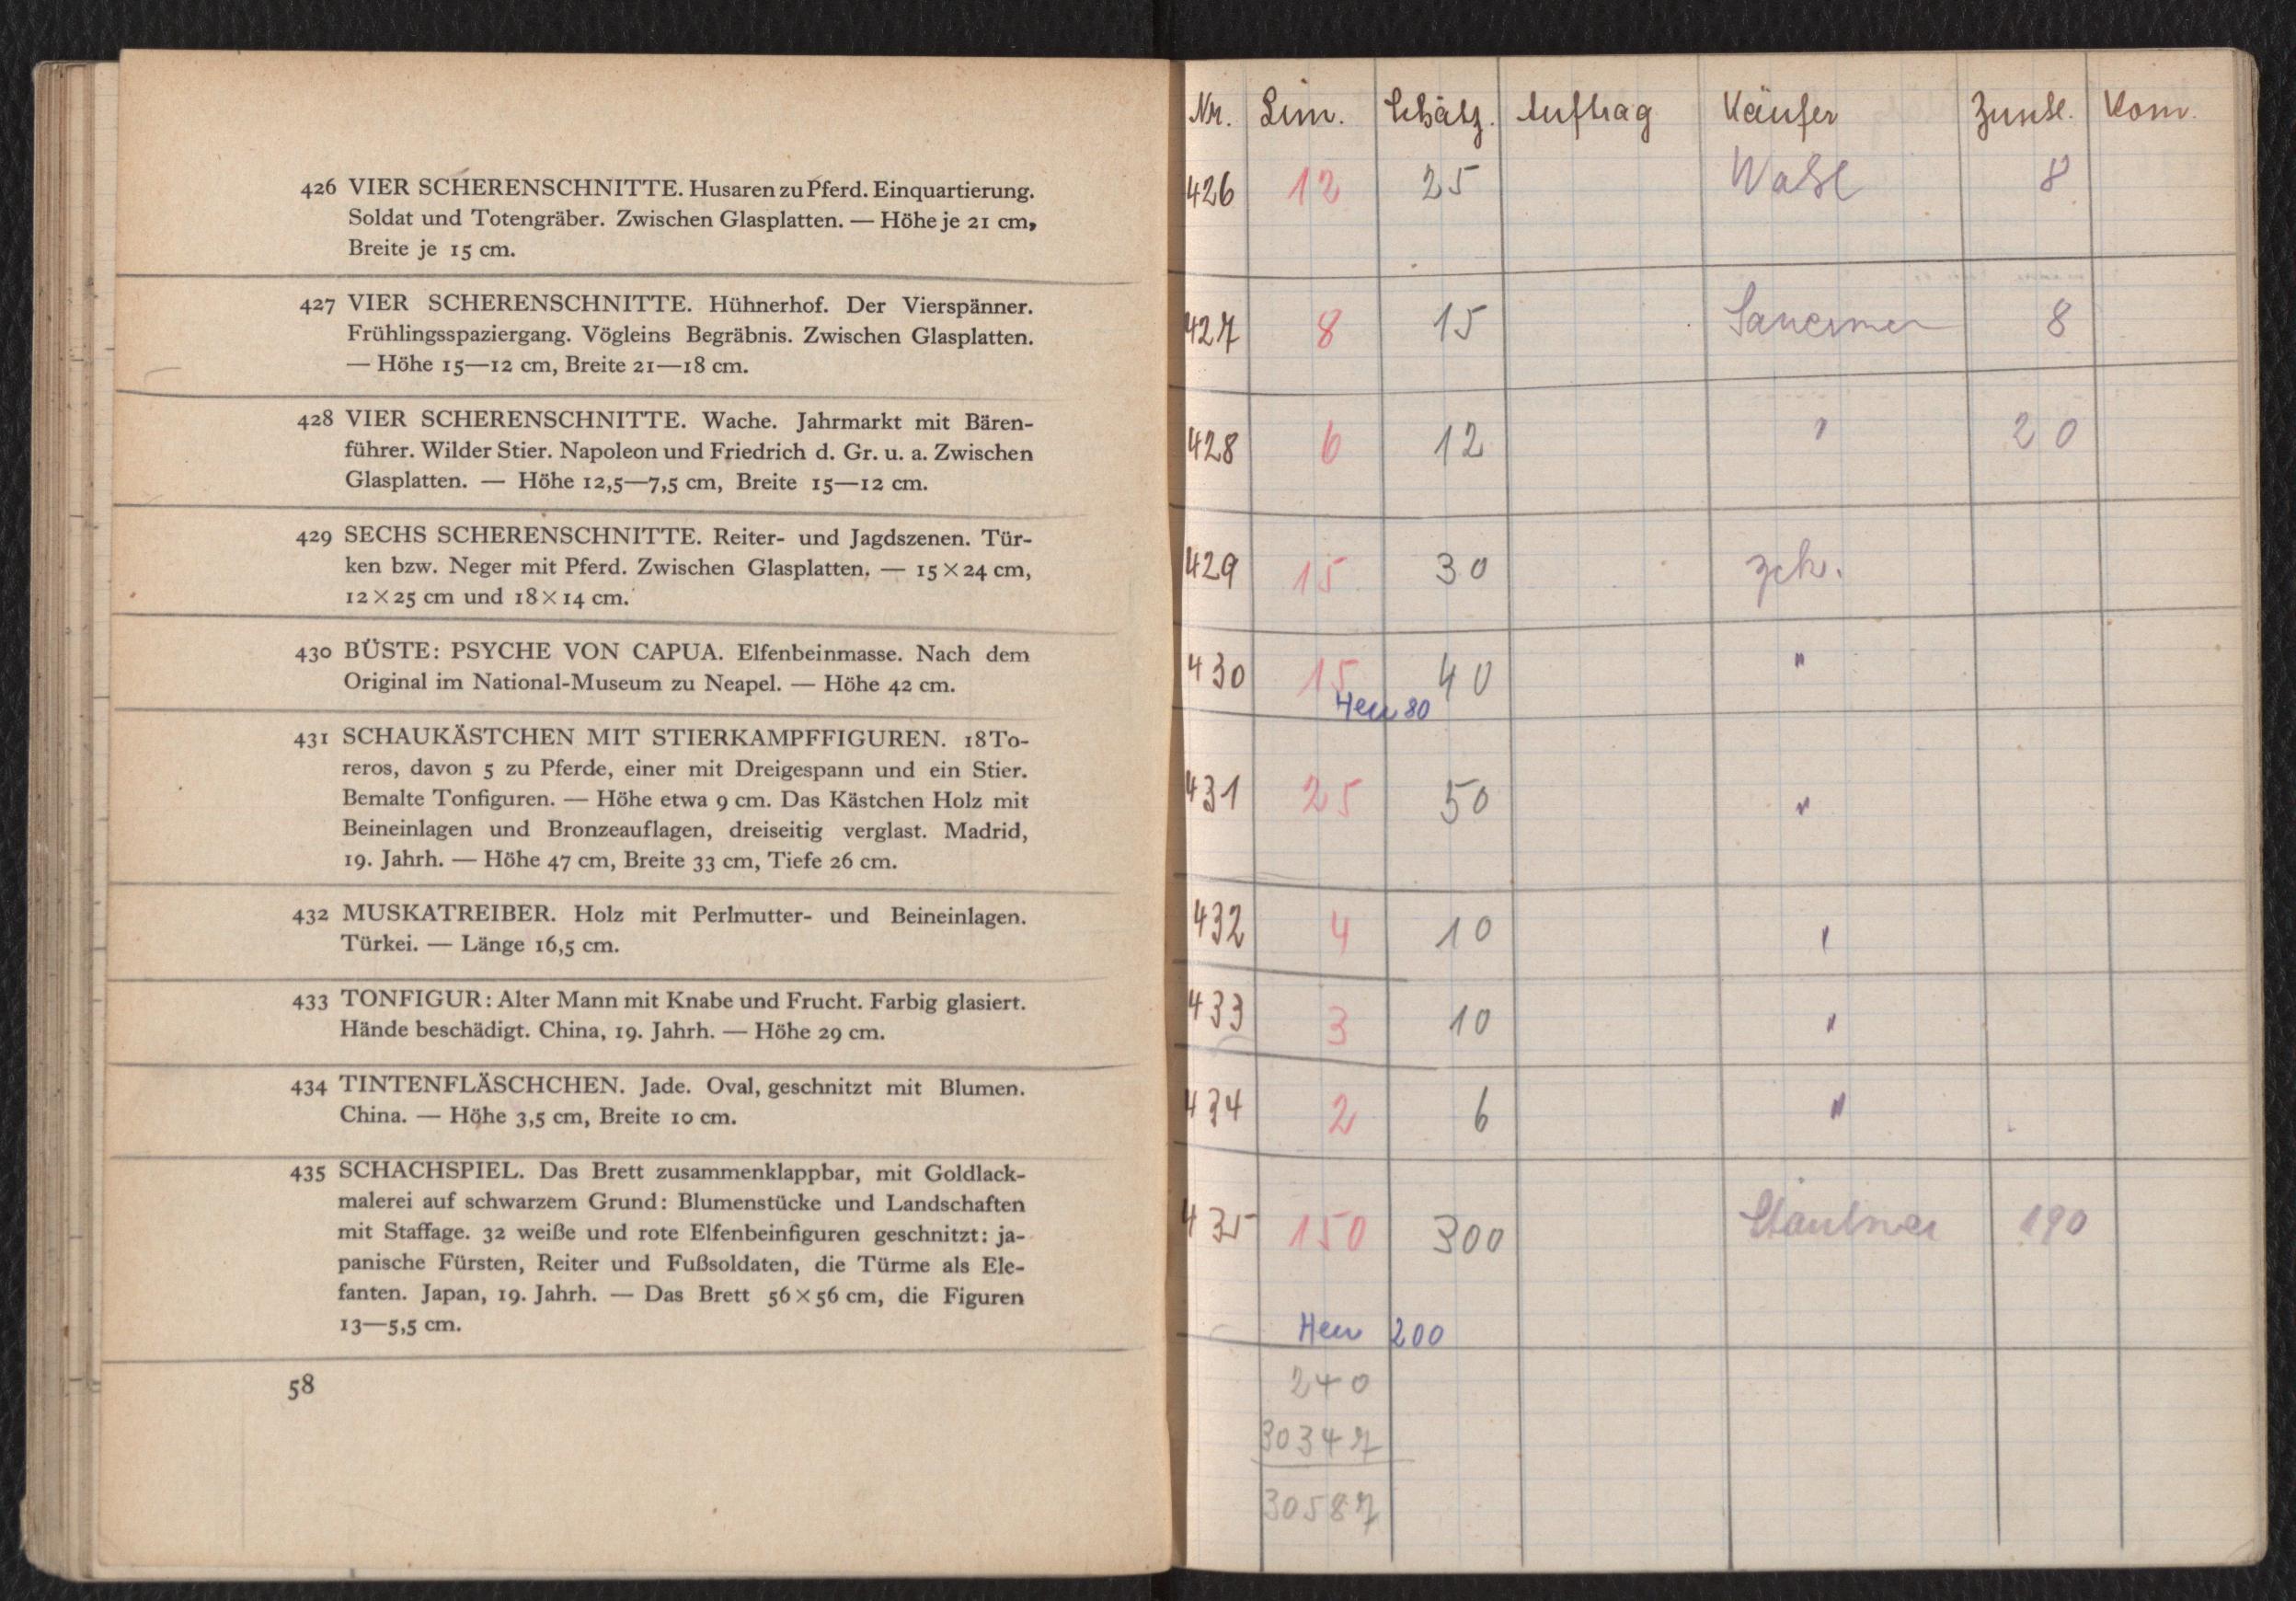 426 VIER SCHERENSCHNITTE. Husaren zu Pferd. Einquartierung.
Soldat und Totengräber. Zwischen Glasplatten. — Höhe je 21 cm,
Breite je 15 cm.
427 VIER SCHERENSCHNITTE. Hühnerhof. Der Vierspänner.
Frühlingsspaziergang. Vögleins Begräbnis. Zwischen Glasplatten.
— Höhe 15—12 cm, Breite 21—18 cm.
428 VIER SCHERENSCHNITTE. Wache. Jahrmarkt mit Bären-
führer. Wilder Stier. Napoleon und Friedrich d. Gr. u. a. Zwischen
Glasplatten. — Höhe 12,5—7,5 cm, Breite 15—12 cm.
429 SECHS SCHERENSCHNITTE. Reiter- und Jagdszenen. Tür-
ken bzw. Neger mit Pferd. Zwischen Glasplatten. — 15×24 cm,
12×25 cm und 18×14 cm.
430 BÜSTE: PSYCHE VON CAPUA. Elfenbeinmasse. Nach dem
Original im National-Museum zu Neapel. — Höhe 42 cm.
431 SCHAUKÄSTCHEN MIT STIERKAMPFFIGUREN. 18 To-
reros, davon 5 zu Pferde, einer mit Dreigespann und ein Stier.
Bemalte Tonfiguren. — Höhe etwa 9 cm. Das Kästchen Holz mit
Beineinlagen und Bronzeauflagen, dreiseitig verglast. Madrid,
19. Jahrh. — Höhe 47 cm, Breite 33 cm, Tiefe 26 cm.
432 MUSKATREIBER. Holz mit Perlmutter- und Beineinlagen.
Türkei. — Länge 16,5 cm.
433 TONFIGUR: Alter Mann mit Knabe und Frucht. Farbig glasiert.
Hände beschädigt. China, 19. Jahrh. — Höhe 29 cm.
434 TINTENFLÄSCHCHEN. Jade. Oval, geschnitzt mit Blumen.
China. — Höhe 3,5 cm, Breite 10 cm.
435 SCHACHSPIEL. Das Brett zusammenklappbar, mit Goldlack-
malerei auf schwarzem Grund: Blumenstücke und Landschaften
mit Staffage. 32 weiße und rote Elfenbeinfiguren geschnitzt: ja-
panische Fürsten, Reiter und Fußsoldaten, die Türme als Ele-
fanten. Japan, 19. Jahrh. — Das Brett 56×56 cm, die Figuren
13—5,5 cm.
58
Nr. Lim. Schätz. Auftrag Käufer Zuschl. Kom.
426 12 25 Wahl 8
427 8 15 8
428 6 12 " 20
429 15 30 zck.
430 15 40 "
80
431 25 50 "
432 4 10 "
433 3 10 "
434 2 6 "
435 150 300 190
200
240
30347
30587